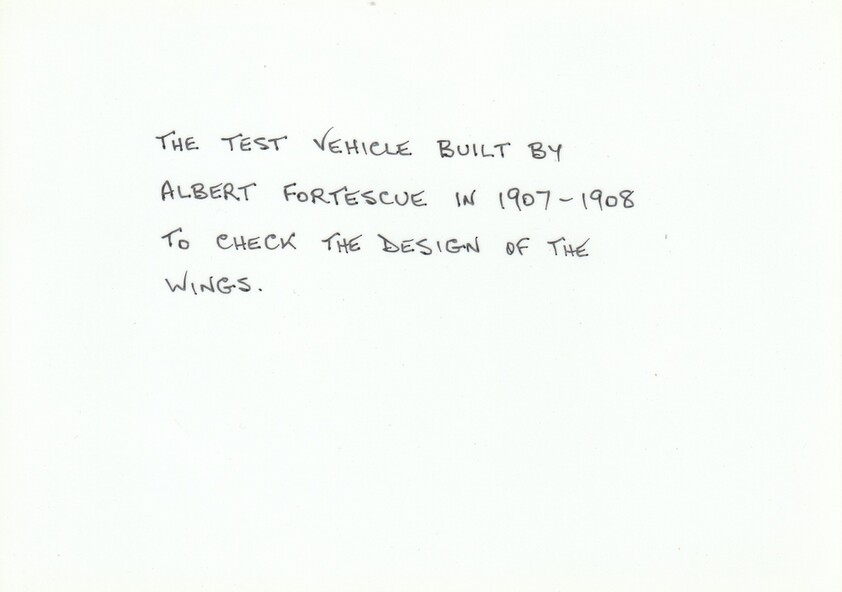 THE TEST VEHICLE BUILT BY
ALBERT FORTESCUE IN 1907-1908
TO CHECK THE DESIGN OF THE
WINGS.